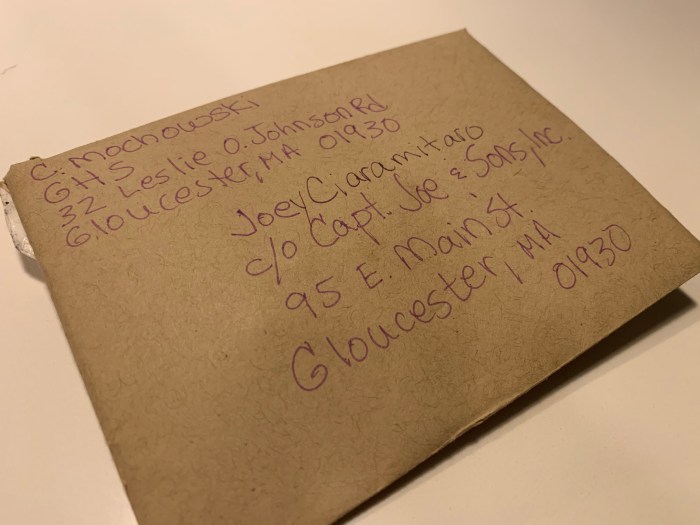 C. Mochowski
GHS
32 Leslie O. Johnson Rd
Gloucester, MA 01930
Joey Ciaramitaro
c/o Capt. Joe & Sons, Inc.
95 E. Main St.
Gloucester, MA
01930